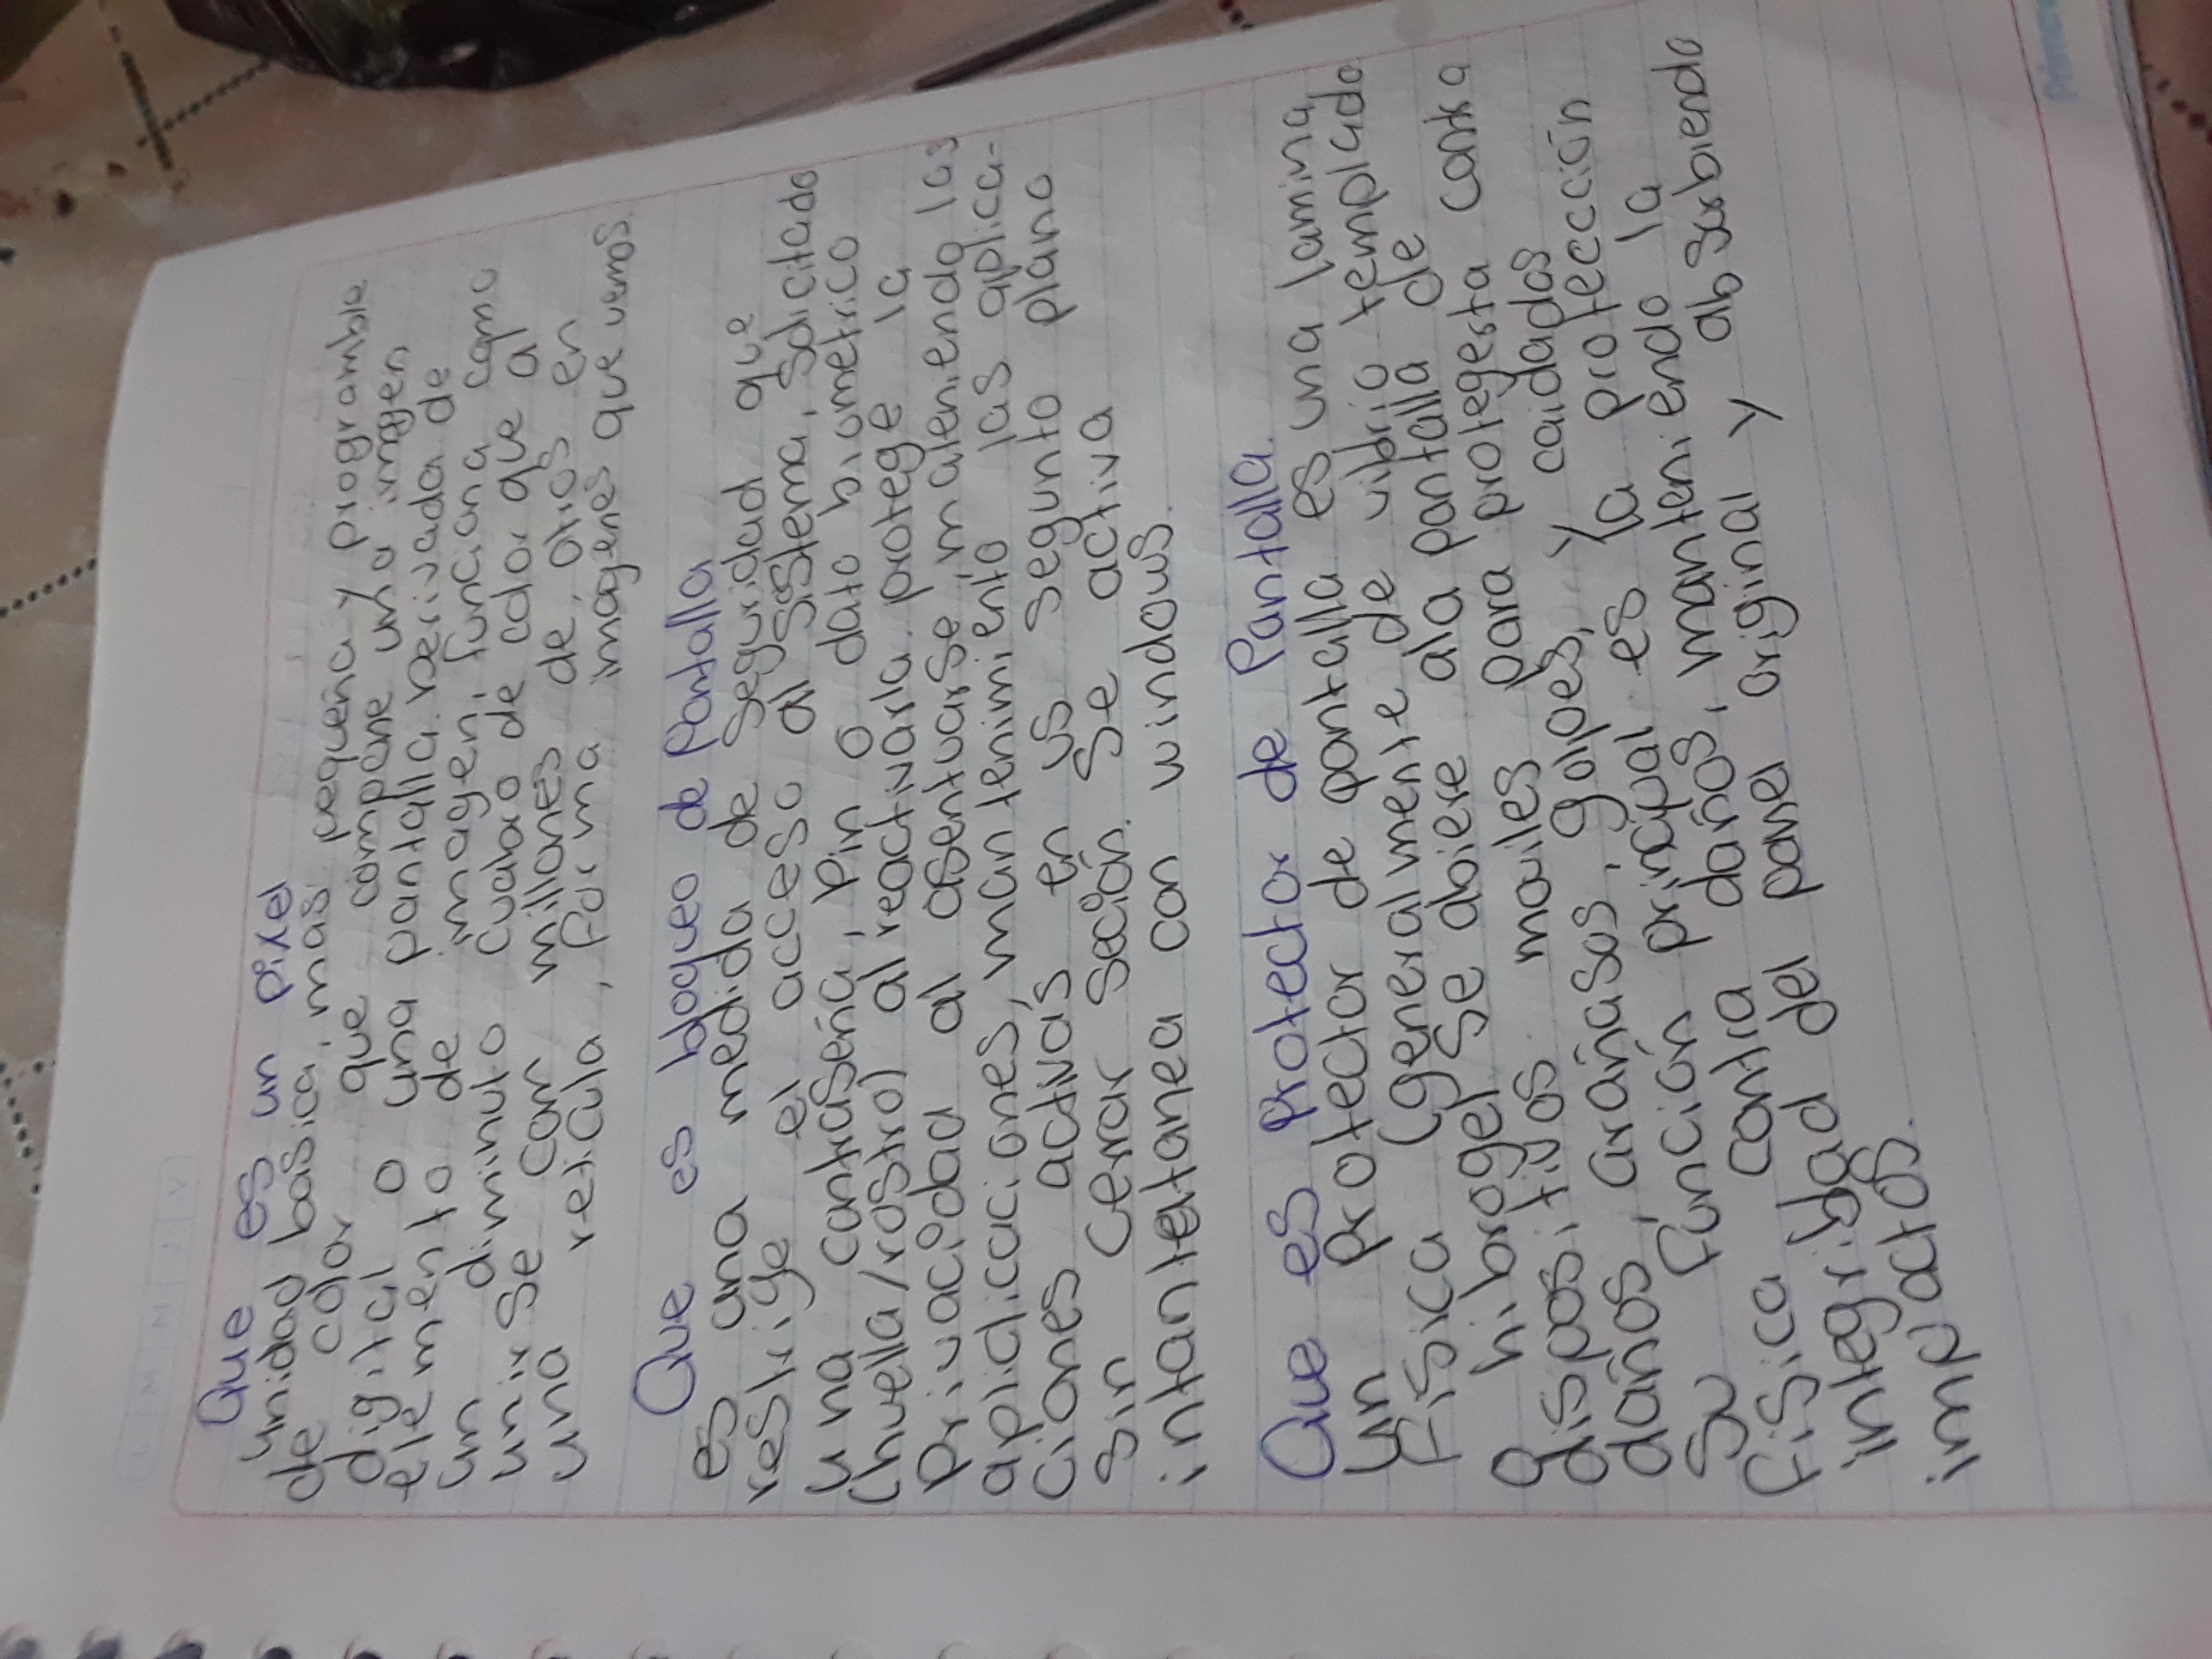 L M M J V
Que es un pixel
unidad basica, mas pequeña y programble
de color que compone una imagen
digital o una pantalla. Derivada de
elemento de imagen; funciona como
un diminuto cuadro de color que al
unirse con millones de, otros en
una reticula, forma imagenes que vemos.
Que es bloqueo de Pantalla
es una medida de seguridad que
restrige el acceso al sistema, solicitado
una contraseña, Pin o dato biometrico
(huella/rostro) al reactivarla. protege la
Privacidad al asentuarse, mateniendo las
aplicaciones, mantenimiento las aplica-
ciones activas en us segunto plano
sin cerrar seción. Se activa
intantextanea con windows.
Que es Protector de Pantalla.
un protector de pantalla es una lamina
Fisica (generalmente de vibrio templado
o hibrogel se abiere ala pantalla de
dispositivos moviles para protegerta contra
daños, arañasos, golpes, y caidados
Su Función principal es la protección
Fisica contra daños, manteniendo la
integridad del panel original y absorbiendo
inpactos.